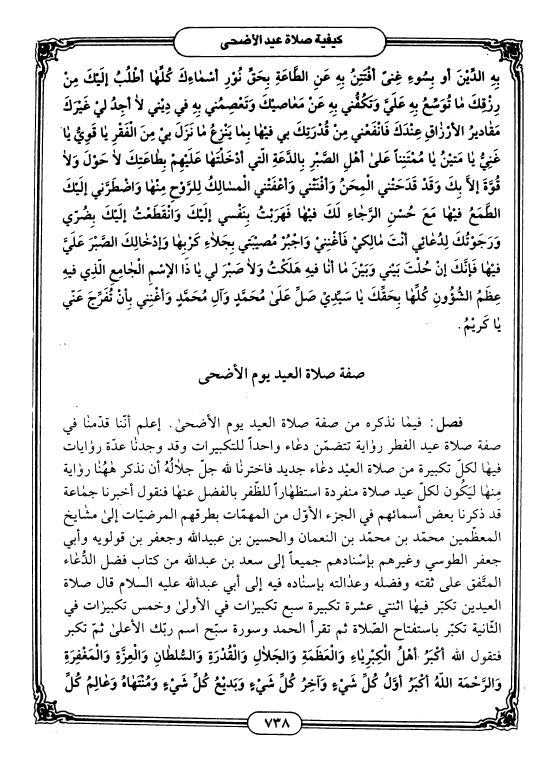 كيفية صلاة عيد الأضحى
بِهِ الدِّيْنَ أو بِسُوءِ غِنىً أفْتَتِنُ بِهِ عَنِ الطَّاعَةِ بِحَقِّ نُورِ أسْمَاءِكَ كُلِّهَا أطْلُبُ إلَيْكَ مِنْ
رِزْقِكَ مَا تُوَسِّعُ بِهِ عَلَيَّ وَتَكُفُّني بِهِ عَنْ مَعَاصيْكَ وَتَعْصِمُني بِهِ في دِيْني لاَ أجِدُ لِي غَيْرَكَ
مَقَاديرُ الأرْزَاقِ عِنْدَكَ فَانْفَعْني مِنْ قُدْرَتِكَ بي فيْهَا بِمَا يَنْزِعُ مَا نَزَلَ بيْ مِنَ الْفَقْرِ يَا قَوِيُّ يَا
غَنِيُّ يَا مَتيْنُ يَا مُمْتَنِناً عَلىٰ أهْلِ الصَّبْرِ بِالدَّعَةِ الَّتي أدْخَلْتَهَا عَلَيْهِمْ بِطَاعَتِكَ لاَ حَوْلَ وَلاَ
قُوَّةَ إلاَّ بِكَ وَقَدْ قَدَحَتْني الْمِحَنُ وَأفْنَتْني وَأعْفَتْني الْمَسَالِكُ لِلرَّوْحِ مِنْهَا وَاضْطَرَّني إلَيْكَ
الطَّمَعُ فيْهَا مَعَ حُسْنِ الرَّجَاءِ لَكَ فيْهَا فَهَرَبْتُ بِنَفْسي إلَيْكَ وَانْقَطَعْتُ إلَيْكَ بِضُرّي
وَرَجَوْتُكَ لِدُعَائي أنْتَ مَالِكيْ فَأغْنِنيْ وَاجْبُرْ مُصيْبَتي بِجَلاَءِ كَرْبِهَا وَإدْخَالِكَ الصَّبْرَ عَلَيَّ
فيْهَا فَإنَّكَ إنْ حُلْتَ بَيْني وَبَيْنَ مَا أنَا فيهِ هَلَكْتُ وَلاَ صَبْرَ لي يَا ذَا الإسْمِ الْجَامِعِ الَّذي فيهِ
عِظَمُ الشُّؤُونِ كُلِّهَا بِحَقِّكَ يَا سَيِّدِيْ صَلِّ عَلىٰ مُحَمَّدٍ وَآلِ مُحَمَّدٍ وَأغْنِني بِأنْ تُفَرِّجَ عَنّي
يَا كَريْمُ.
صفة صلاة العيد يوم الأضحى
فصل: فيمَا نذكره من صفة صلاة العيد يوم الأضحىٰ. إعلم أنّنا قدّمنَا في
صفة صلاة عيد الفطر روَاية تتضمّن دعَاء وَاحداً للتكبيرات وقد وجدنَا عدّة روَايات
فيهَا لكلّ تكبيرة من صلاة العيْد دعَاء جديد فاخترنَا لله جلّ جلاَلُه أن نذكر هٰهُنَا روَاية
مِنهَا ليَكُون لكلّ عيد صلاة منفردة استظهَاراً للظّفر بالفضل عنهَا فنقول أخبرنا جمَاعة
قد ذكرنَا بعض أسمَائهم في الجزء الأوّل من المهمّات بطرقهم المرضيّات إلىٰ مشَايخ
المعظّمين محمّد بن محمّد بن النعمَان والحسين بن عبيدالله وجعفر بن قولويه وأبي
جعفر الطوسي وغيرهم بإسْنَادهم جميعاً إلى سعد بن عبدالله من كتاب فضل الدُّعَاء
المتّفق على ثقته وفضله وعدَالته بإسنَاده فيه إلى أبي عبدالله عليه السلام قال صلاة
العيدين تكبّر فيهَا اثنتي عشرة تكبيرة سبع تكبيرَات في الأولىٰ وخمس تكبيرَات في
الثّانية تكبّر باستفتَاح الصّلاة ثم تقرأ الحمد وسورة سبّح اسم ربّك الأعلىٰ ثمّ تكبر
فتقول الله أكْبَرُ أهْلُ الْكِبْرِيَاءِ وَالْعَظَمَةِ وَالْجَلاَلِ وَالْقُدْرَةِ وَالسُّلْطَانِ وَالْعِزَّةِ وَالْمَغْفِرَةِ
وَالرَّحْمَة اللَّهُ أكْبَرُ أوَّلُ كُلِّ شَيْءٍ وَآخِرُ كُلِّ شَيْءٍ وَبَديْعُ كُلِّ شَيْءٍ وَمُنْتَهَاهُ وَعَالِمُ كُلِّ
٧٣٨